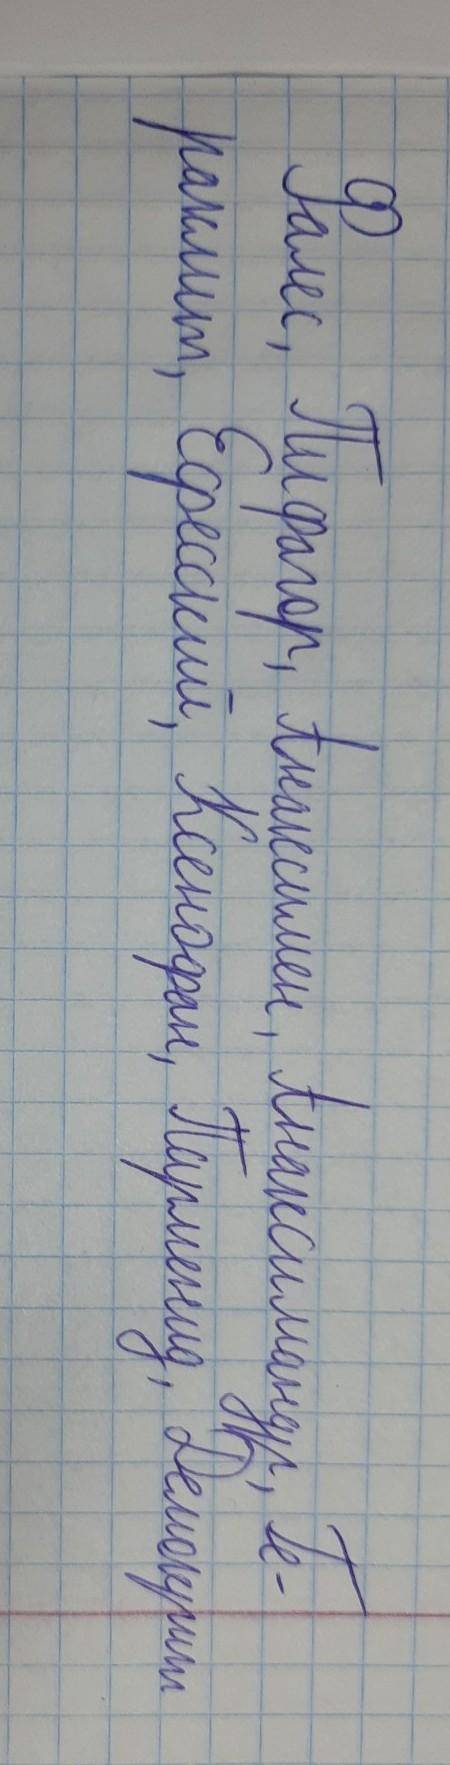 Фалес, Пифагор, Анаксимен, Анаксимандр, Ге-
раклит, Ефесский, Ксенофан, Парменид, Демокрит